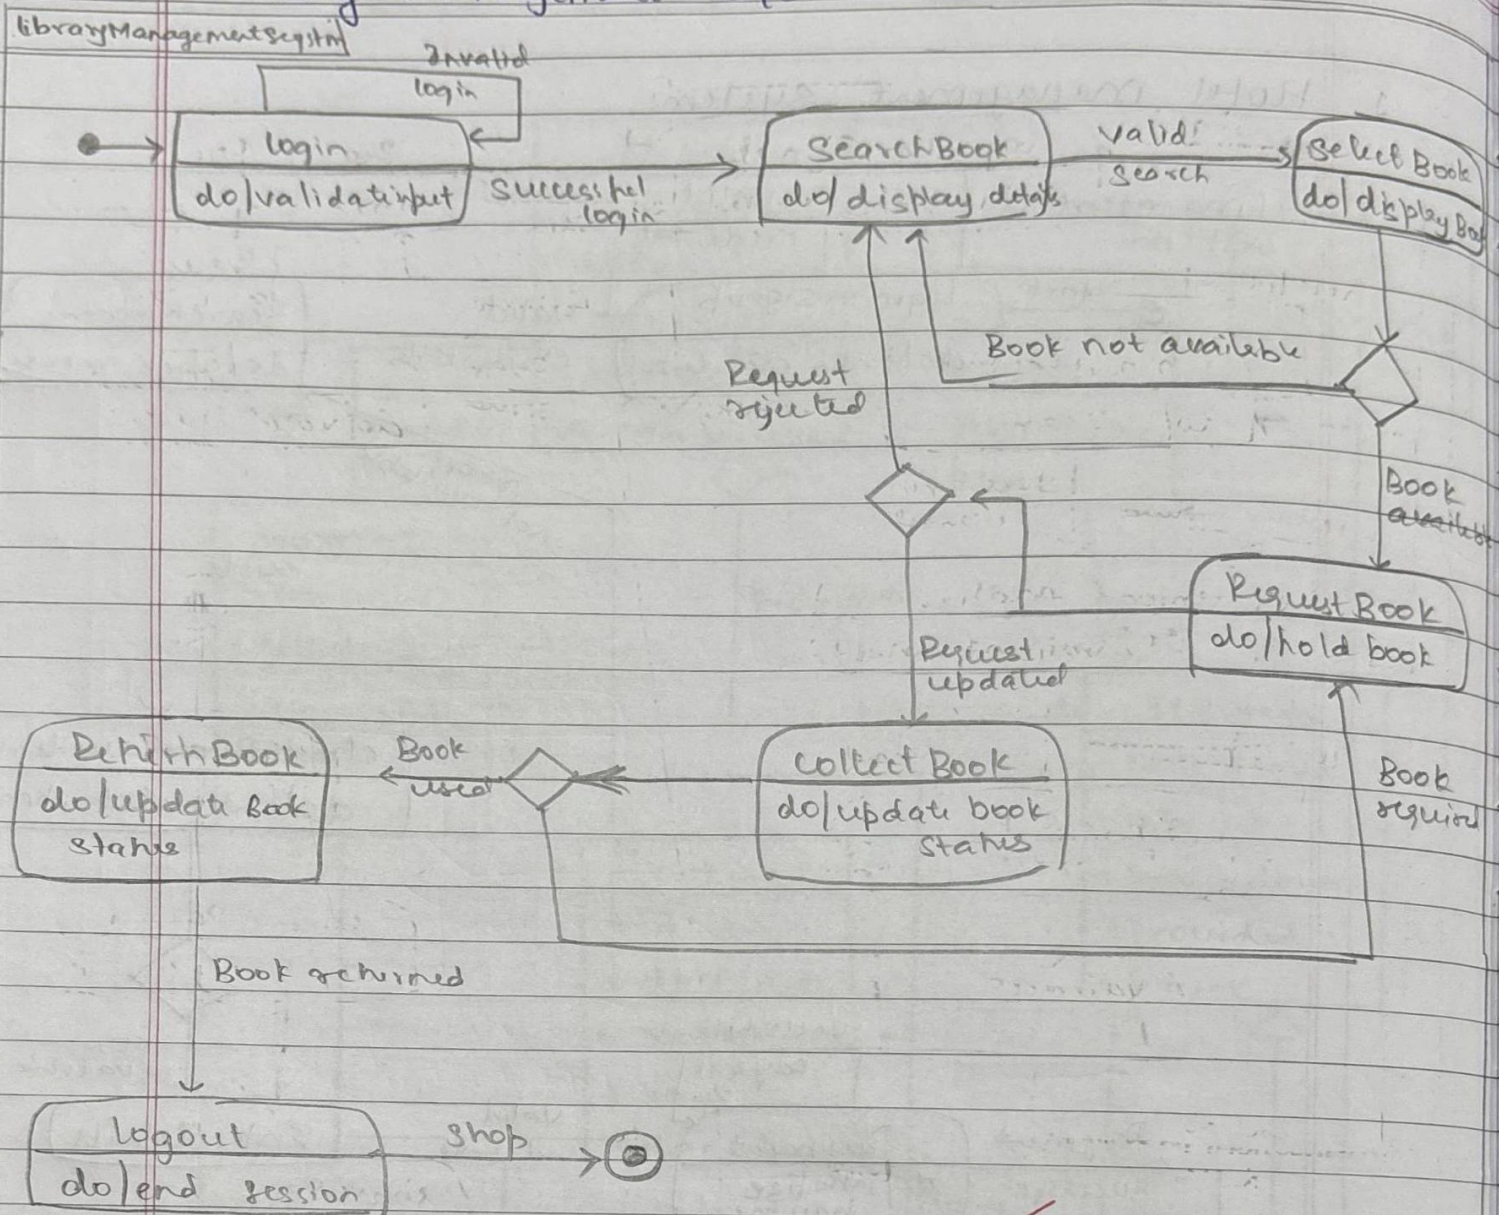 libraryManagementSeqstm
Invalid
login
login
do/validatinput
successful
login
SearchBook
do/display details
valid
search
Select Book
do/displayBoo
Book not available
Request
rejected
Book
available
RequestBook
do/hold book
Request
updated
Book
required
ReturnBook
do/update Book
status
Book
used
collect Book
do/update book
status
Book returned
logout
do/end session
stop